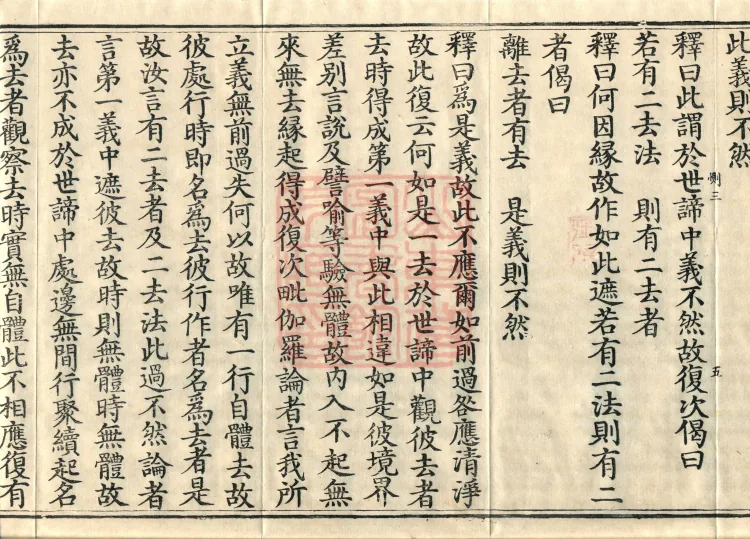 此義則不然
釋曰此謂於世諦中義不然故復次偈曰
若有二去法　則有二去者
釋曰何因緣故作如此遮若有二法則有二
者偈曰
離去者有去　是義則不然
釋曰爲是義故此不應爾如前過咎應清淨
故此復云何如是一去於世諦中觀彼去者
去時得成第一義中與此相違如是彼境界
差別言說及譬喻等驗無體故內入不起無
來無去緣起得成復次毗伽羅論者言我所
立義無前過失何以故唯有一行自體去故
彼處行時即名爲去彼行作者名爲去者是
故汝言有二去者及二去法此過不然論者
言第一義中遮彼去故時則無體時無體故
去亦不成於世諦中處邊無間行聚續起名
爲去者觀察去時實無自體此不相應復有
三
五